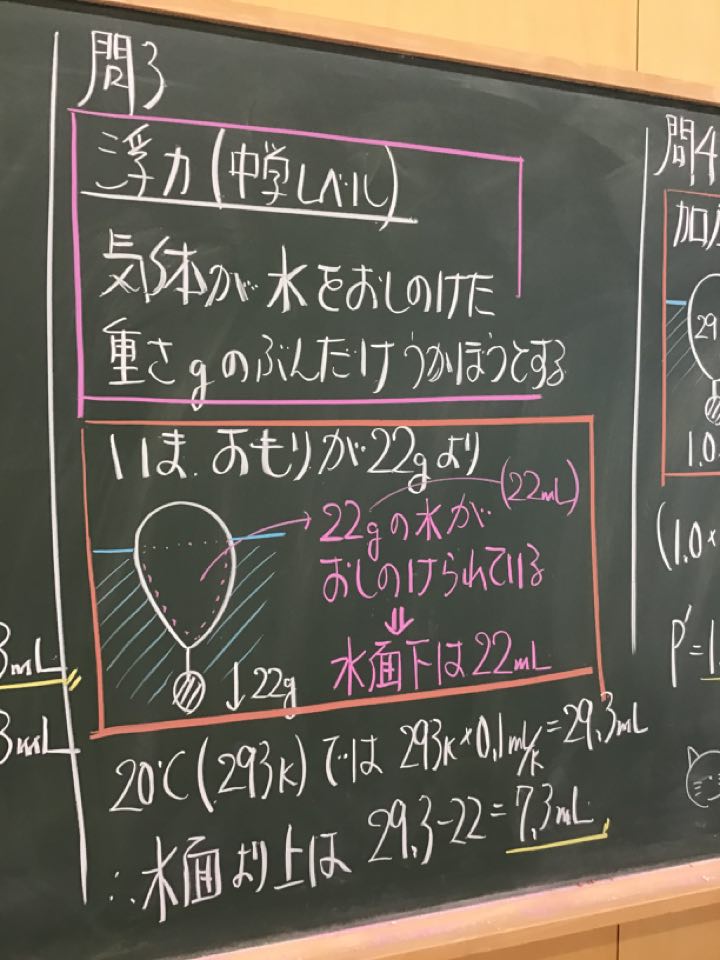 問3
浮力(中学レベル)
気体が水をおしのけた
重さgのぶんだけうかぼうとする
いま、おもりが22gより
22gの水が
(22mL)
おしのけられている
⇓
水面下は22mL
↓22g
20℃(293K)では 293K×0.1mL/K=29.3mL
∴水面より上は 29.3-22=7.3mL
3mL
3mL
問4
29
1.0
(1.0×
P'=1